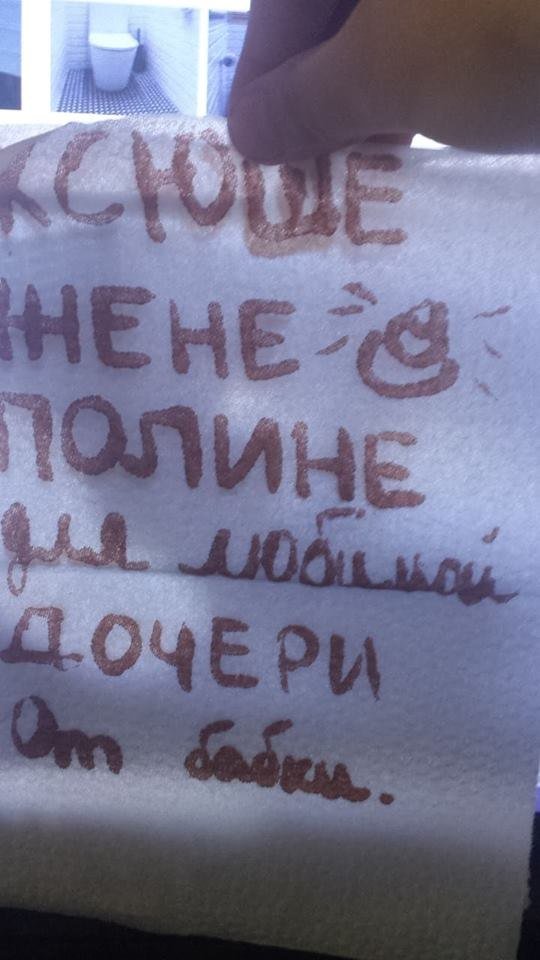 КСЮШЕ
ЖЕНЕ
ПОЛИНЕ
для любимой
ДОЧЕРИ
От бабки.